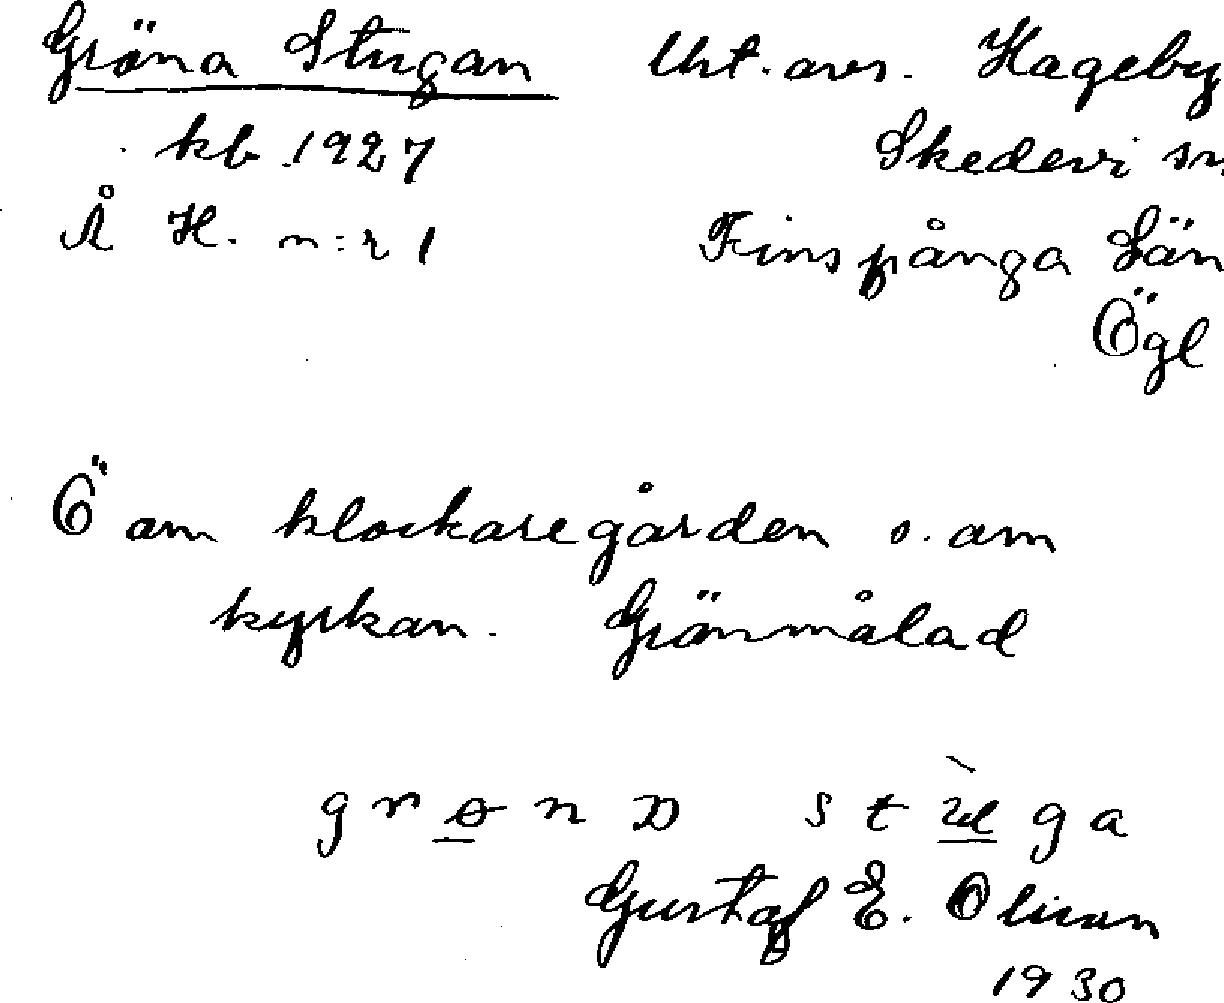 Gröna Stugan Urt. avs. Hageby
kb 1927 Skedevi sn.
Å H. n:r 1 Finspånga Län
Ögl
Ö om klockaregården o. om
kyrkan. Grönmålad
Gustaf E. Olsson
1930